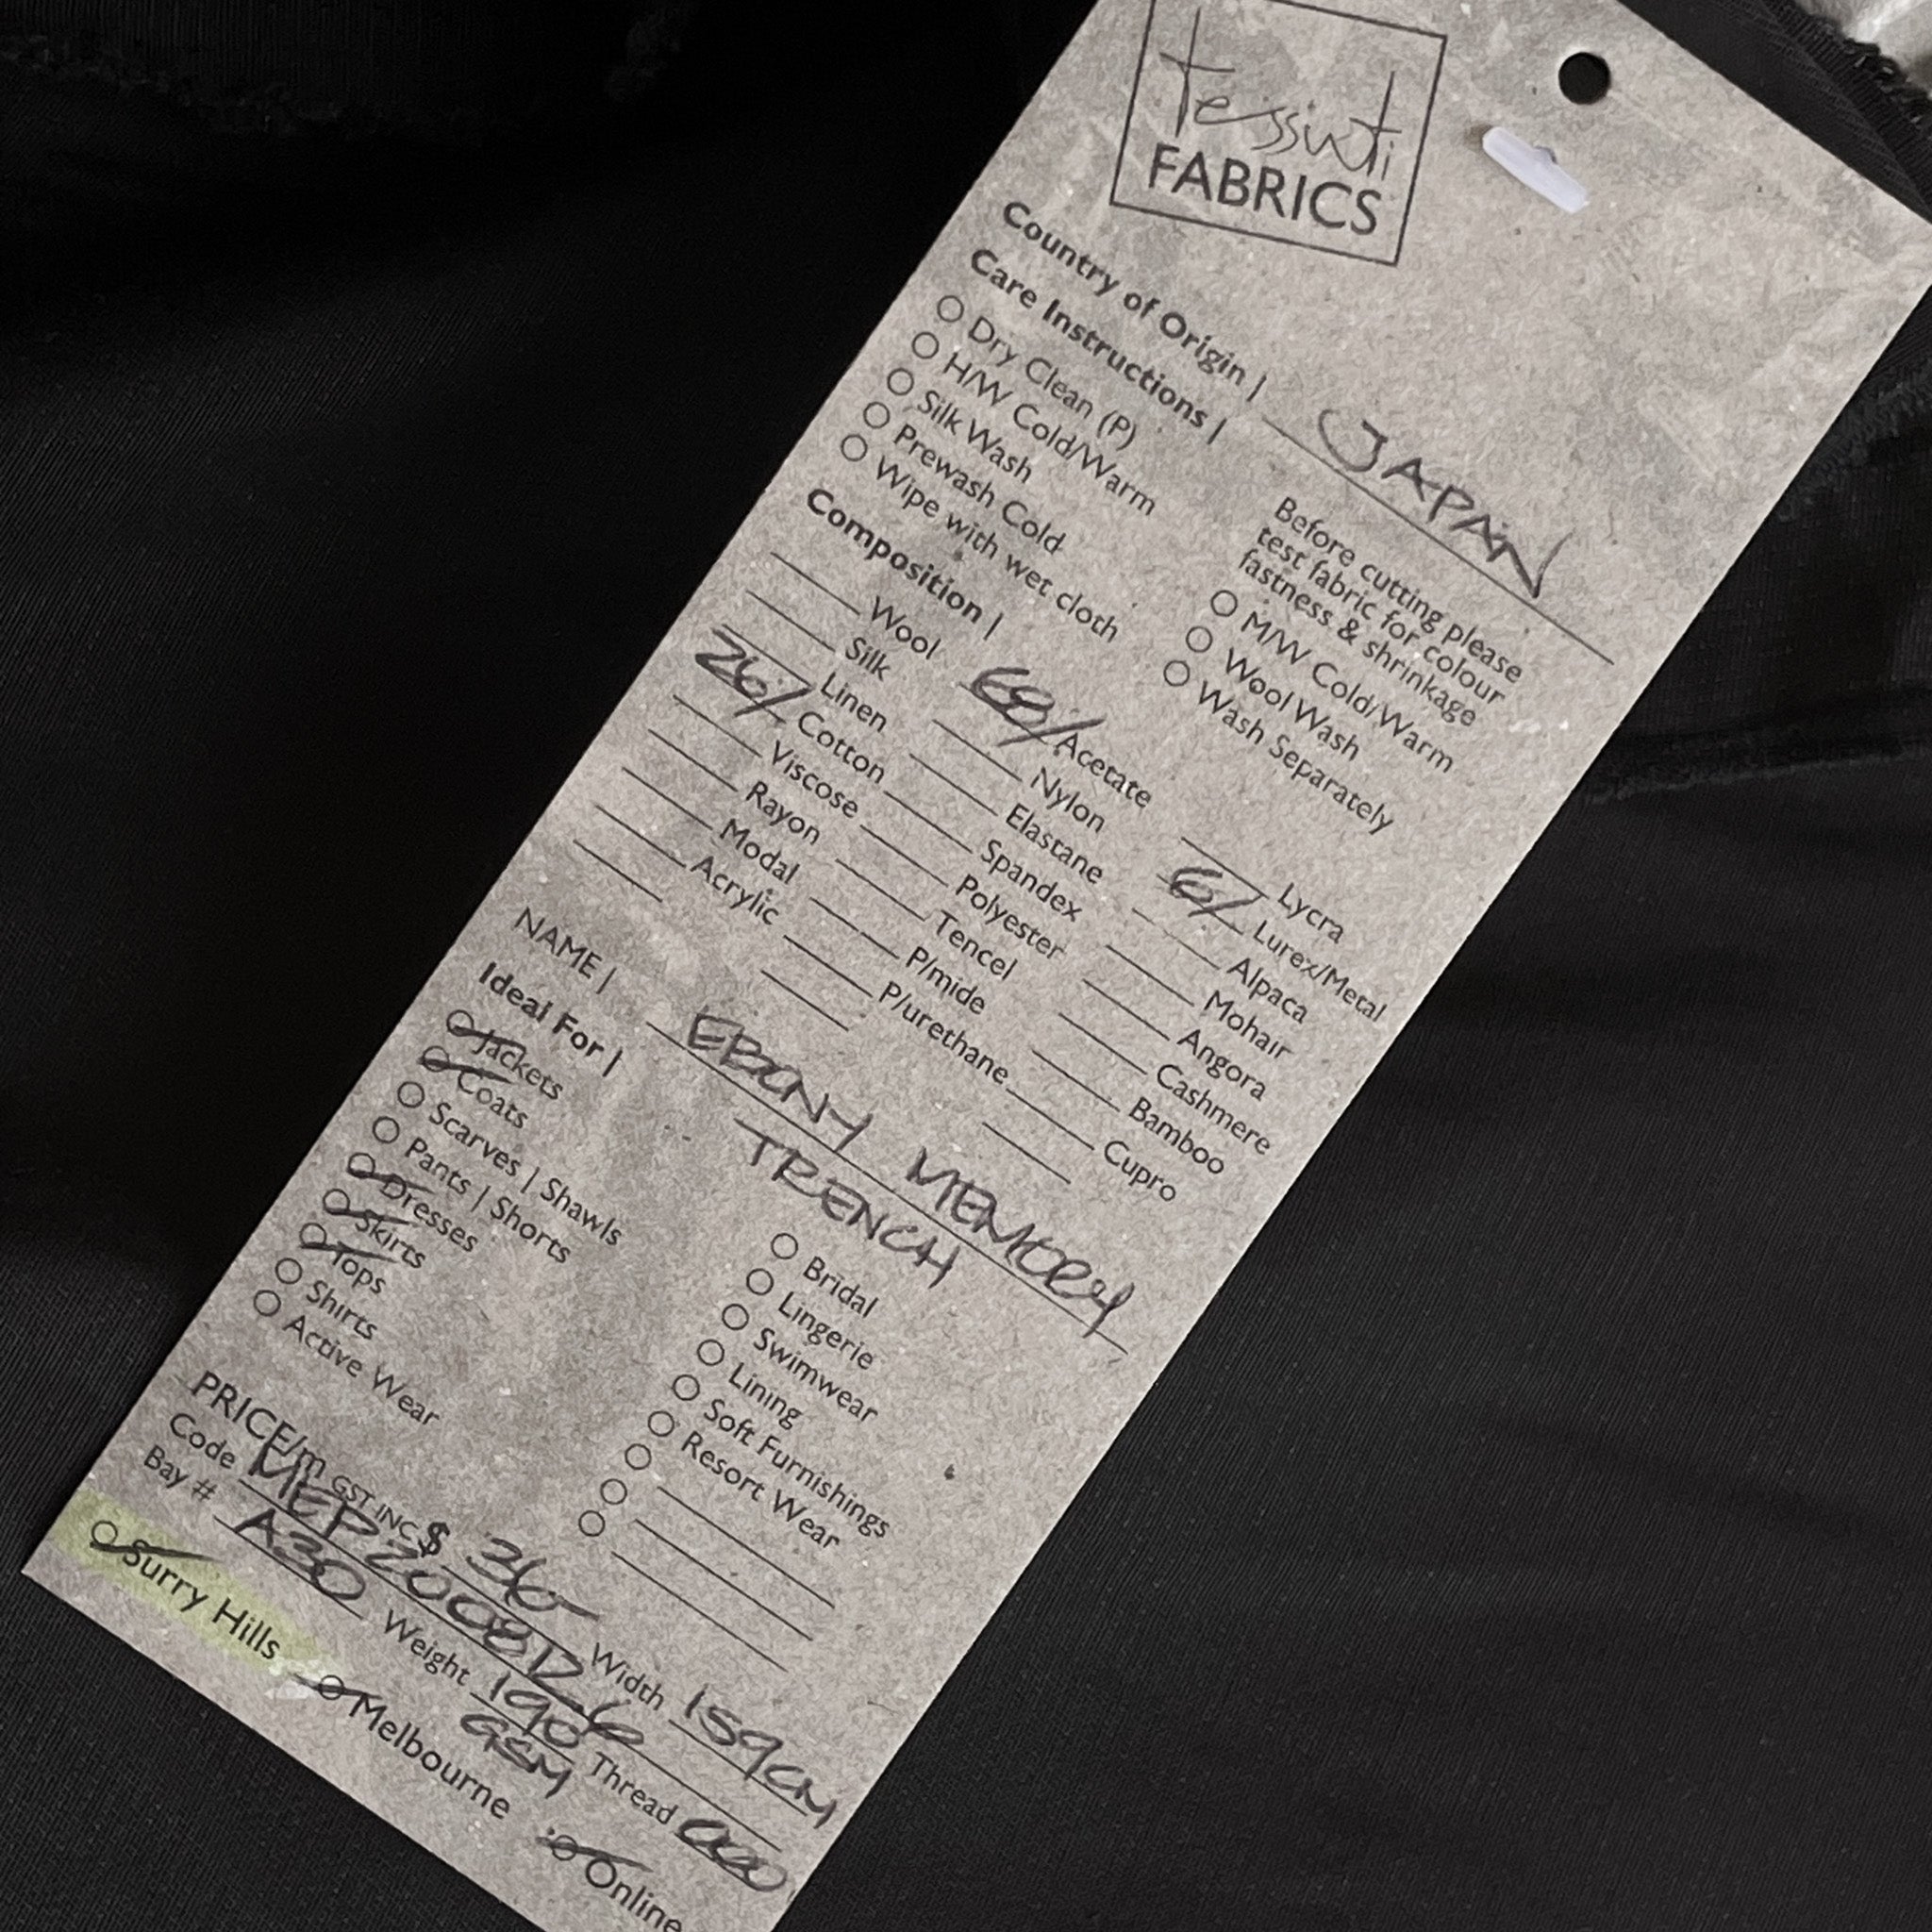 tessuti
FABRICS
Country of Origin | JAPAN
Care Instructions |
Dry Clean (P)
H/W Cold/Warm
Silk Wash
Prewash Cold
Wipe with wet cloth
Before cutting please
test fabric for colour
fastness & shrinkage
M/W Cold/Warm
Wool Wash
Wash Separately
Composition |
Wool
Silk
Linen
26/ Cotton
Viscose
Rayon
Modal
Acrylic
68/ Acetate
Nylon
Elastane
Spandex
Polyester
Tencel
P/mide
P/urethane
Lycra
6/ Lurex/Metal
Alpaca
Mohair
Angora
Cashmere
Bamboo
Cupro
NAME | EBONY MEMORY
TRENCH
Ideal For |
Jackets
Coats
Scarves | Shawls
Pants | Shorts
Dresses
Skirts
Tops
Shirts
Active Wear
Bridal
Lingerie
Swimwear
Lining
Soft Furnishings
Resort Wear
PRICE/m GST INC $ 36- Width 159CM
Code MEP200812-6
Bay # A30 Weight 190 GSM Thread 000
Surry Hills Melbourne Online